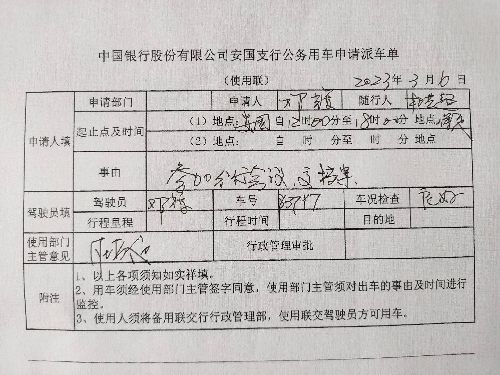 中国银行股份有限公司安国支行公务用车申请派车单
(使用联) 2023年3月6日
申请人填 申请部门 申请人 随行人
起止点及时间 (1)地点:安国 自12时00分至18时00分 地点:
(2)地点: 自 时 分至 时 分 地点:
事由 参加分行会议,交档案.
驾驶员填 驾驶员 车号 车况检查 良好
行程里程 行程时间 目的地
使用部门主管意见 行政管理审批
附注 1、以上各项须知如实祥填。
2、用车须经使用部门主管签字同意,使用部门主管须对出车的事由及时间进行
监控。
3、使用人须将备用联交行行政管理部,使用联交驾驶员方可用车。